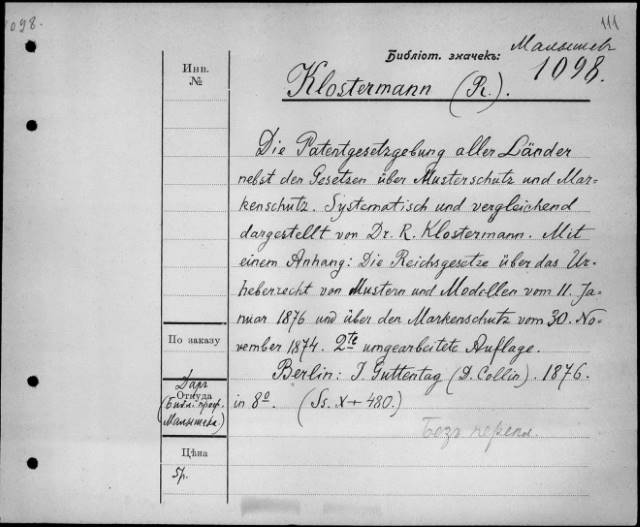 1098.
111
Библіот. значекъ:
Малышев
1098.
Инв.
№
Klostermann (R.).
Die Patentgesetzgebung aller Länder
nebst den Gesetzen über Musterschutz und Mar=
kenschutz. Systematisch und vergleichend
dargestellt von Dr. R. Klostermann. Mit
einem Anhang: Die Reichsgesetze über das Ur=
heberrecht von Mustern und Modellen vom 11. Ja=
nuar 1876 und über den Markenschutz vom 30. No=
vember 1874. 2te umgearbeitete Auflage.
Berlin: J. Guttentag (D. Collin). 1876.
in 8o. (Ss. X + 480.)
Безъ перепл.
По заказу
Даръ
Откуда
(Библ. проф.
Малышева)
Цѣна
5р.